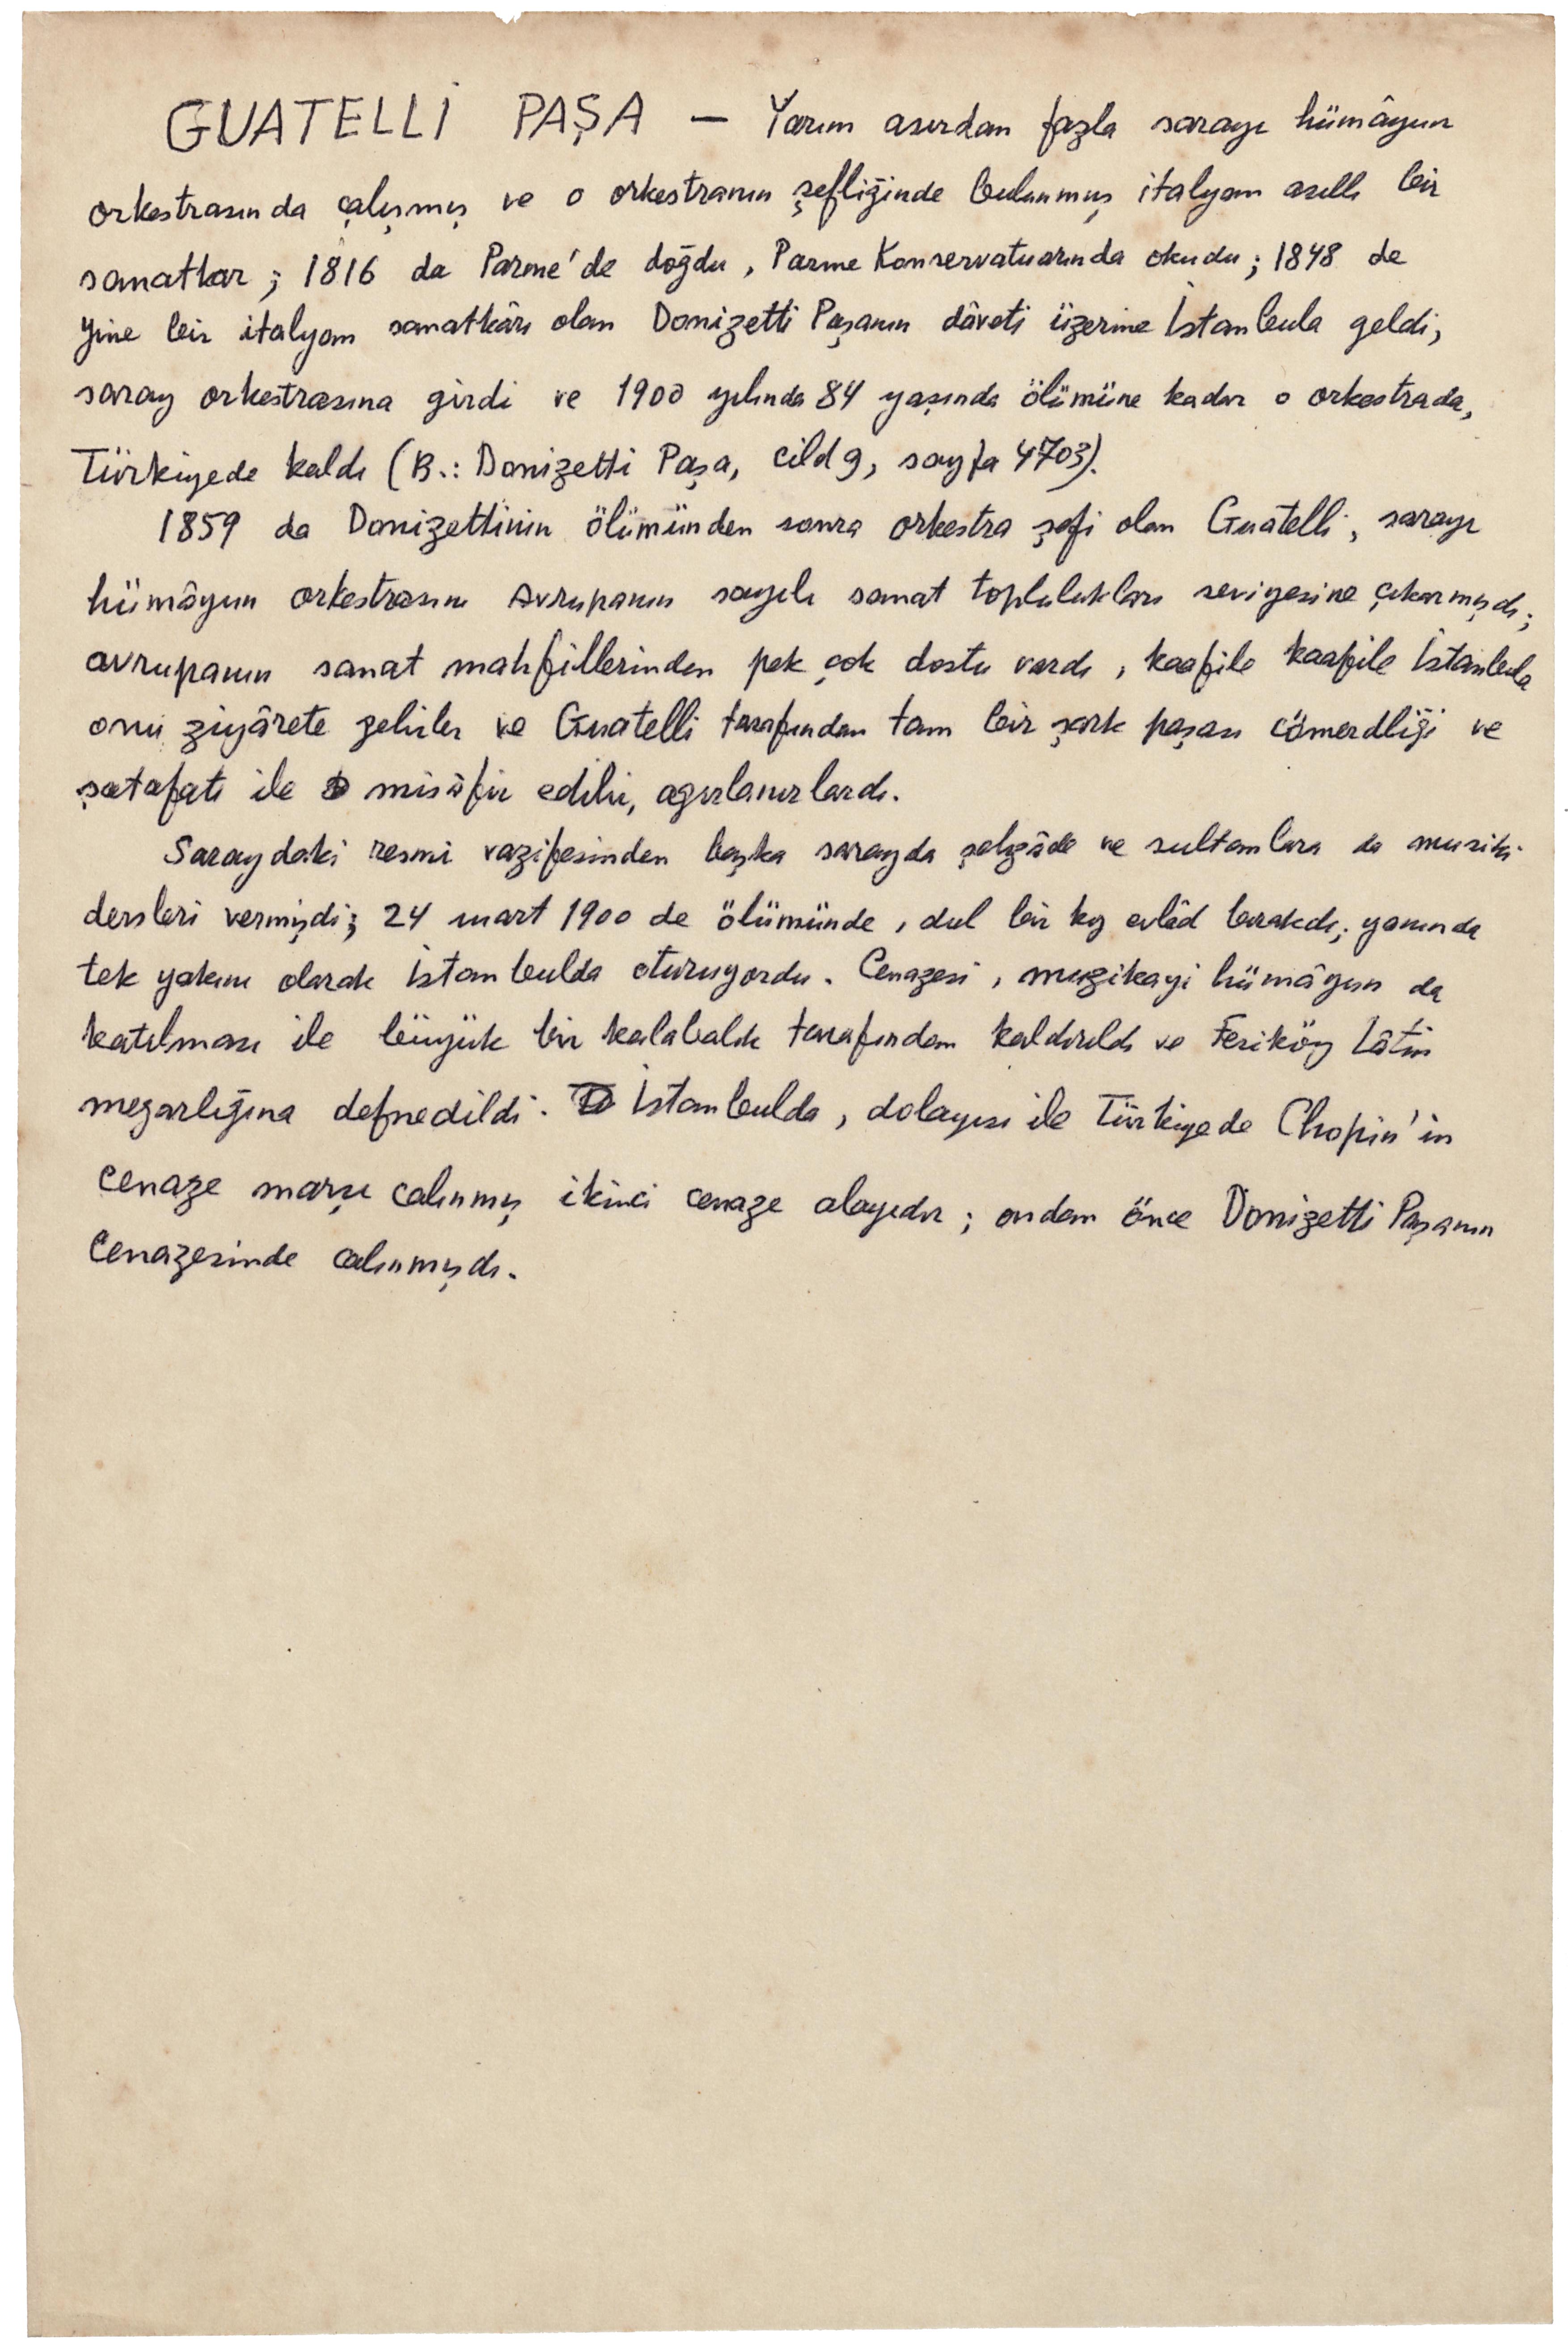 GUATELLİ PAŞA — Yarım asırdan fazla sarayı hümâyun
orkestrasında çalışmış ve o orkestranın şefliğinde bulunmuş italyan asıllı bir
sanatkar ; 1816 da Parme'de doğdu, Parme Konservatuarında okudu; 1848 de
yine bir italyan sanatkârı olan Donizetti Paşanın dâveti üzerine İstanbula geldi,
saray orkestrasına girdi ve 1900 yılında 84 yaşında ölümüne kadar o orkestrada,
Türkiyede kaldı (B.: Donizetti Paşa, cild 9, sayfa 4703).
1859 da Donizettinin ölümünden sonra orkestra şefi olan Guatelli, sarayı
hümâyun orkestrasını Avrupanın sayılı sanat toplulukları seviyesine çıkarmışdı;
avrupanın sanat mahfillerinden pek çok dostu vardı, kaafile kaafile İstanbula
onu ziyârete gelirler ve Guatelli tarafından tam bir şark paşası cömerdliği ve
şatafatı ile misâfir edilir, agırlanırlardı.
Saraydaki resmi vazifesinden başka sarayda şehzâde ve sultanlara da musiki
dersleri vermişdi; 24 mart 1900 de ölümünde, dul bir kız evlâd bırakdı; yanında
tek yakını olarak İstanbulda oturuyordu. Cenazesi, muzikayi hümâyun da
katılması ile büyük bir kalabalık tarafından kaldırıldı ve Feriköy Lâtin
mezarlığına defnedildi. İstanbulda, dolayısı ile Türkiyede Chopin'in
cenaze marşı calınmış ikinci cenaze alayıdır ; ondan önce Donizetti Paşanın
cenazesinde calınmışdı.